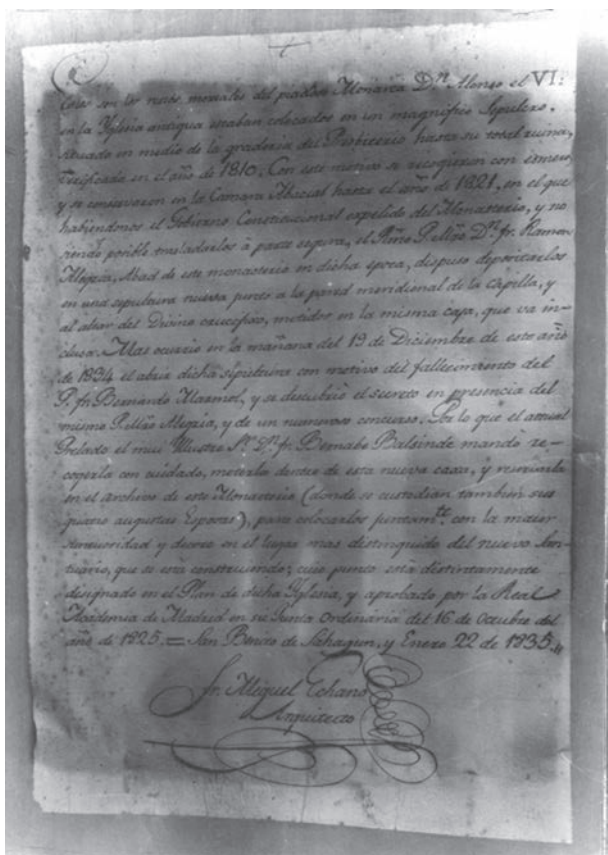 Estos son los restos mortales del piadoso Monarca Dn. Alonso el VI:
en la Yglesia antigua estaban colocados en un magnifico Sepulcro,
situado en medio de la graderia del Presbiterio hasta su total ruina,
verificada en el año de 1810. Con este motivo se recogieron con esmero,
y se conservaron en la Camara Abacial hasta el año de 1821, en el que
habiendonos el Gobierno Constitucional expelido del Monasterio, y no
siendo posible trasladarlos à parte segura, el Dn. fr. Ramon
Alegria, Abad de este monasterio en dicha epoca, dispuso depositarlos
en una sepultura nueva junto a la pared meridional de la Capilla, y
al altar del Divino crucifixo, metidos en la misma caja, que va in-
clusa. Mas ocurrio en la mañana del 19 de Diciembre de este año
de 1834 el abrir dicha sepultura con motivo del fallecimiento del
P. fr. Bernardo Marmol, y se descubrio el secreto en presencia del
mismo P. Mro Alegria, y de un numeroso concurso. Por lo que el actual
Prelado el mui Illustre Sr. Dn. fr. Bernabe Balsinde mando re-
cogerla con cuidado, meterla dentro de esta nueva caxa, y
en el archivo de este Monasterio (donde se custodian tambien sus
quatro augustas Esposas), para colocarlos juntamte. con la maior
decoro en el lugar mas distinguido del nuevo San-
tuario, que se esta construiendo; cuio punto està distintamente
designado en el Plan de dicha Yglesia, y aprobado por la Real
Academia de Madrid en su Junta Ordinaria del 16 de Octubre del
año de 1825. = San Benito de Sahagun, y Enero 22 de 1835.
fr. Miguel Echano
Arquitecto